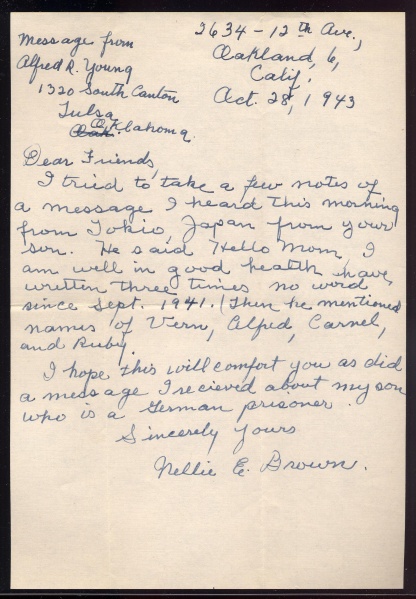 2634-12th Ave.,
Message from
Oakland, 6,
Alfred R. Young
Calif,
1320 South Canton
Oct. 28, 1943
Tulsa
Oklahoma
Dear Friends,
I tried to take a few notes of
a message I heard this morning
from Tokio, Japan from your
son. He said Hello Mom, I
am well in good health have
written three times no word
since Sept. 1941. (Then he mentioned
names of Vern, Alfred, Carnel,
and Ruby.
I hope this will comfort you as did
a message I recieved about my son
who is a German prisoner.
Sincerely Yours
Nellie E. Brown.